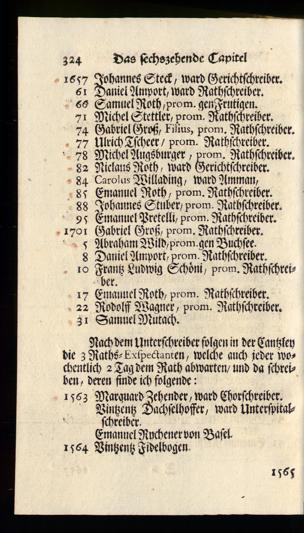 324 Das sechszehende Capitel
1657 Johannes Steck, ward Gerichtschreiber.
61 Daniel Amport, ward Rathschreiber.
66 Samuel Roth, prom. gen Frutigen.
71 Michel Stettler, prom. Rathschreiber.
74 Gabriel Groß, Filius, prom. Rathschreiber.
77 Ulrich Tscheer, prom. Rathschreiber.
78 Michel Augsburger, prom. Rathschreiber.
82 Niclaus Roth, ward Gerichtschreiber.
84 Carolus Willading, ward Amman.
85 Emanuel Roth, prom. Rathschreiber.
88 Johannes Stuber, prom. Rathschreiber.
95 Emanuel Bretelli, prom. Rathschreiber.
1701 Gabriel Groß, prom. Rathschreiber.
5 Abraham Wild, prom. gen Buchsee.
8 Daniel Amport, prom. Rathschreiber.
10 Frantz Ludwig Schöni, prom. Rathschrei-
ber.
17 Emanuel Roth, prom. Rathschreiber.
22 Rodolff Wagner, prom. Rathschreiber.
31 Samuel Mutach.
Nach dem Unterschreiber folgen in der Cantzley
die 3 Raths-Exspectanten, welche auch jeder wo-
chentlich 2 Tag dem Rath abwarten, und da schrei-
ben, deren finde ich folgende:
1563 Marquard Zehender, ward Chorschreiber.
Vintzentz Dachselhoffer, ward Unterspital-
schreiber.
Emanuel Rychener von Basel.
1564 Vintzentz Fidelbogen.
1565